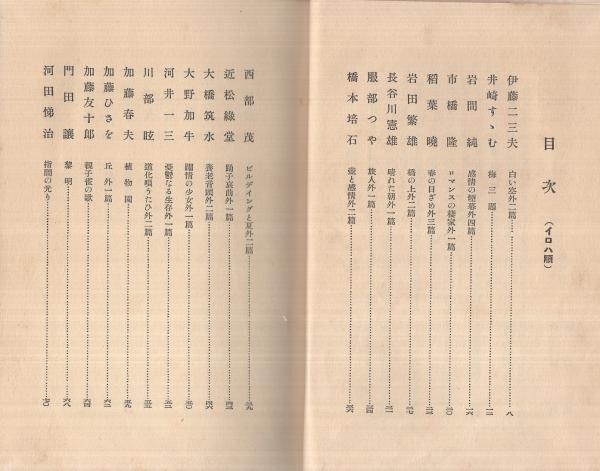 目次（イロハ順）
伊藤二三夫 白い姿外二篇……八
井崎すゝむ 梅三題……一三
岩間純 感情の煙幕外四篇……一六
市橋隆 ロマンスの棲家外一篇……二〇
稲葉曉 春の目ざめ外三篇……二三
岩田繁雄 橋の上外二篇……二七
長谷川憲雄 晴れた朝外一篇……三一
服部つや 旅人外一篇……三四
橋本培石 壺と感情外二篇……三六
西部茂 ビルディングと夏外二篇……三九
近松綠堂 踊子哀曲外一篇……四三
大橋筑水 養老音頭外二篇……四六
大野加牛 園情の少女外一篇……五〇
河井一三 憂鬱なる生存外一篇……五三
川部眩 道化唄うたひ外二篇……五五
加藤春夫 植物園……五九
加藤ひさを 丘外一篇……六二
加藤友十郎 親子雀の歌……六四
門田讓 黎明……六八
河田悌治 指間の光り……七〇